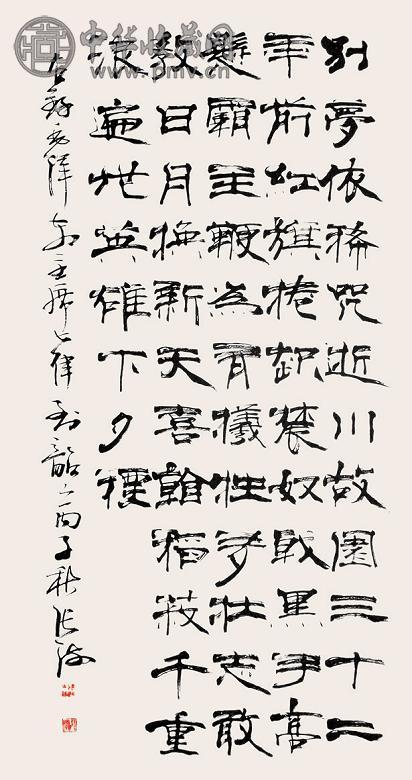 中华收藏网
www.pmv.cn
别夢依稀咒逝川故園三十二
年前紅旗捲起農奴戟黑手高
懸霸主鞭為有犧牲多壯志敢
教日月換新天喜看稻菽千重
浪遍地英雄下夕煙
右錄毛澤東主席七律到韶山丙子秋張海